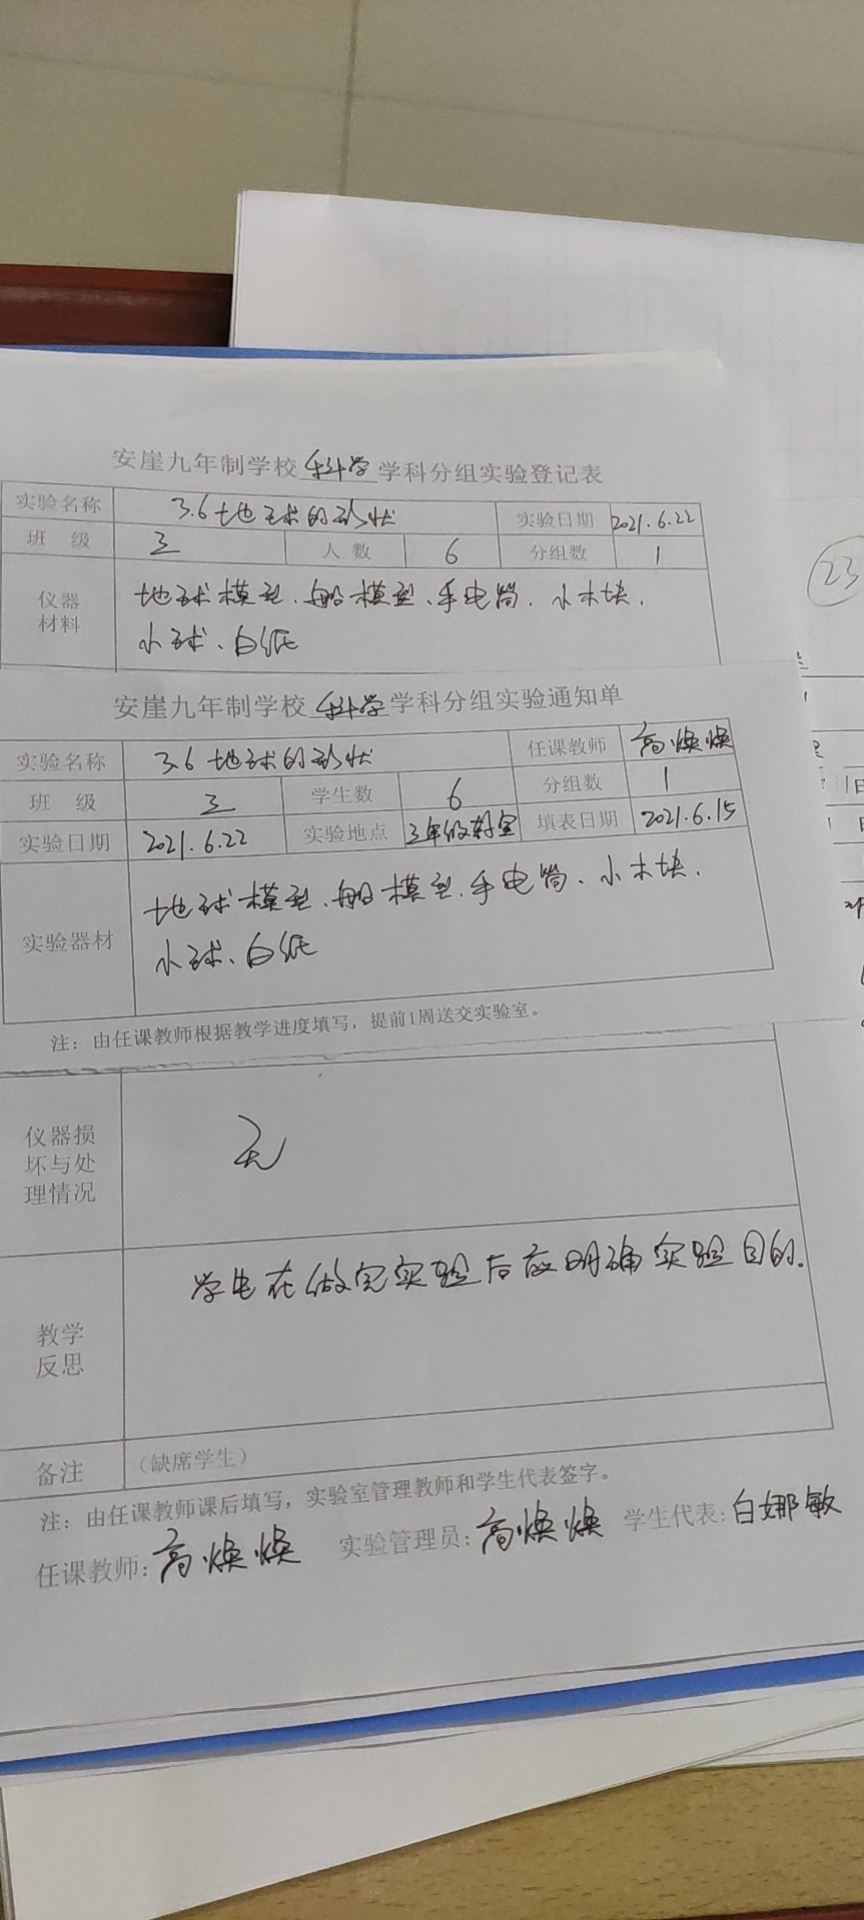 安崖九年制学校 科学 学科分组实验登记表
实验名称 3.6 地球的形状 实验日期 2021.6.22
班 级 三 人 数 6 分组数 1
仪器材料 地球模型、船模型、手电筒、小木块、
小球、白纸
23
安崖九年制学校 科学 学科分组实验通知单
实验名称 3.6 地球的形状 任课教师 高焕焕
班 级 三 学生数 6 分组数 1
实验日期 2021.6.22 实验地点 三年级教室 填表日期 2021.6.15
实验器材 地球模型、船模型、手电筒、小木块、
小球、白纸
注：由任课教师根据教学进度填写，提前1周送交实验室。
仪器损坏与处理情况 无
教学反思 学生在做完实验后应明确实验目的.
备注 （缺席学生）
注：由任课教师课后填写，实验室管理教师和学生代表签字。
任课教师：高焕焕 实验管理员：高焕焕 学生代表：白娜敏